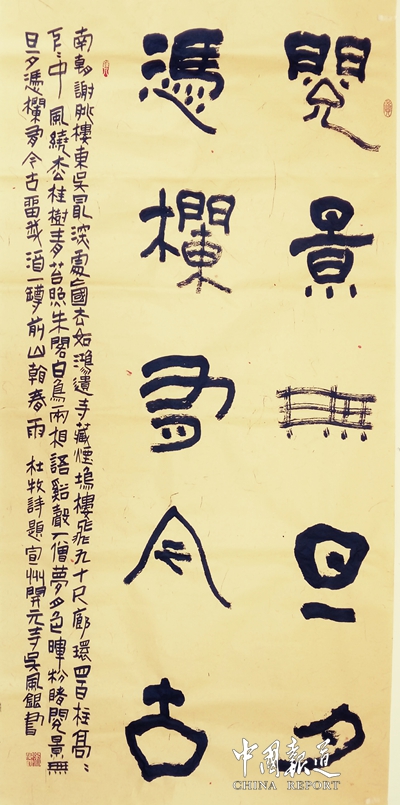 閱景無旦夕
憑欄有今古
南朝謝朓樓東吳最深處亡國去如鴻遺寺藏煙塢樓飛九十尺廊環四百柱高〻
下〻中風繞松桂樹青苔照朱閣白鳥兩相語谿聲入僧夢月色暉粉堵閱景無
旦夕憑欄有今古留我酒一罇前山看春雨 杜牧詩題宣州開元寺吳風銀書
中國報道
CHINA REPORT